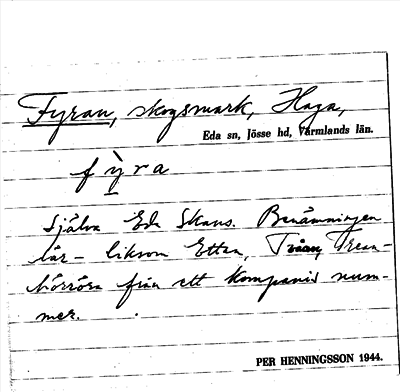 Fyran, skogsmark, Haga,
Eda sn, Jösse hd, Värmlands län.
fỳra
Själva Eda Skans. Benämningen
lär – liksom Ettan, Tvåan, Trean –
härröra från ett kompanis num-
mer.
PER HENNINGSSON 1944.